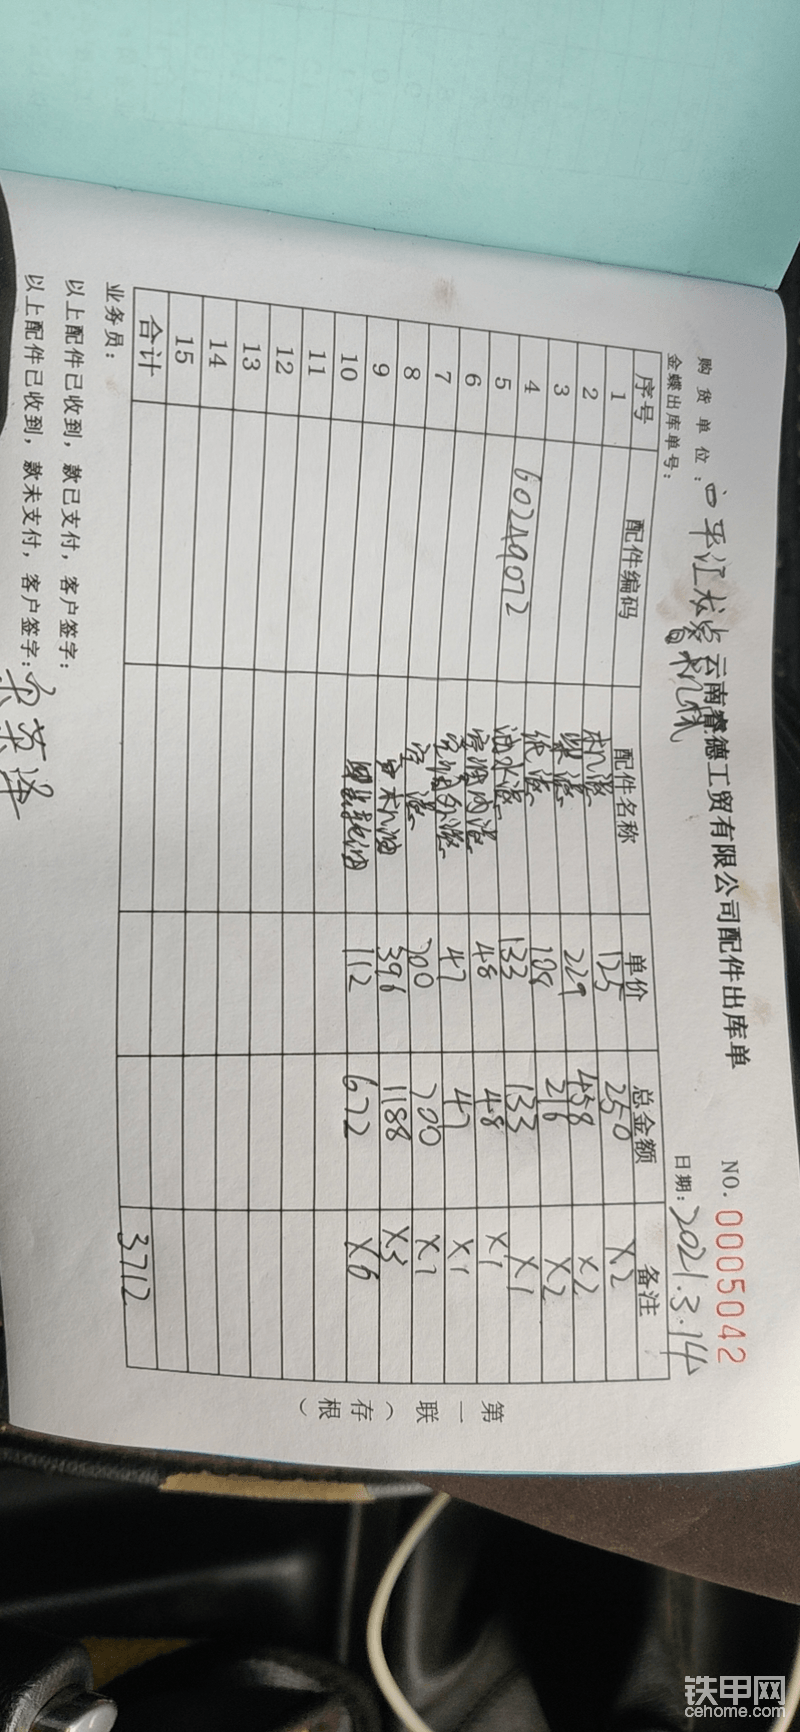 云南睿德工贸有限公司配件出库单
NO. 0005042
购货单位：
日期：2021.3.14
金蝶出库单号：
序号 配件编码 配件名称 单价 总金额 备注
1 机滤 125 250 X2
2 柴滤 229 458 X2
3 纸滤 108 216 X2
4 60249072 油水滤 133 133 X1
5 空调内滤 48 48 X1
6 空调外滤 47 47 X1
7 空滤 700 700 X1
8 机油 396 1188 X3
9 112 672 X6
10
11
12
13
14
15
合计 3712
业务员：
以上配件已收到，款已支付，客户签字：
以上配件已收到，款未支付，客户签字：
第一联（存根）
铁甲网
cehome.com